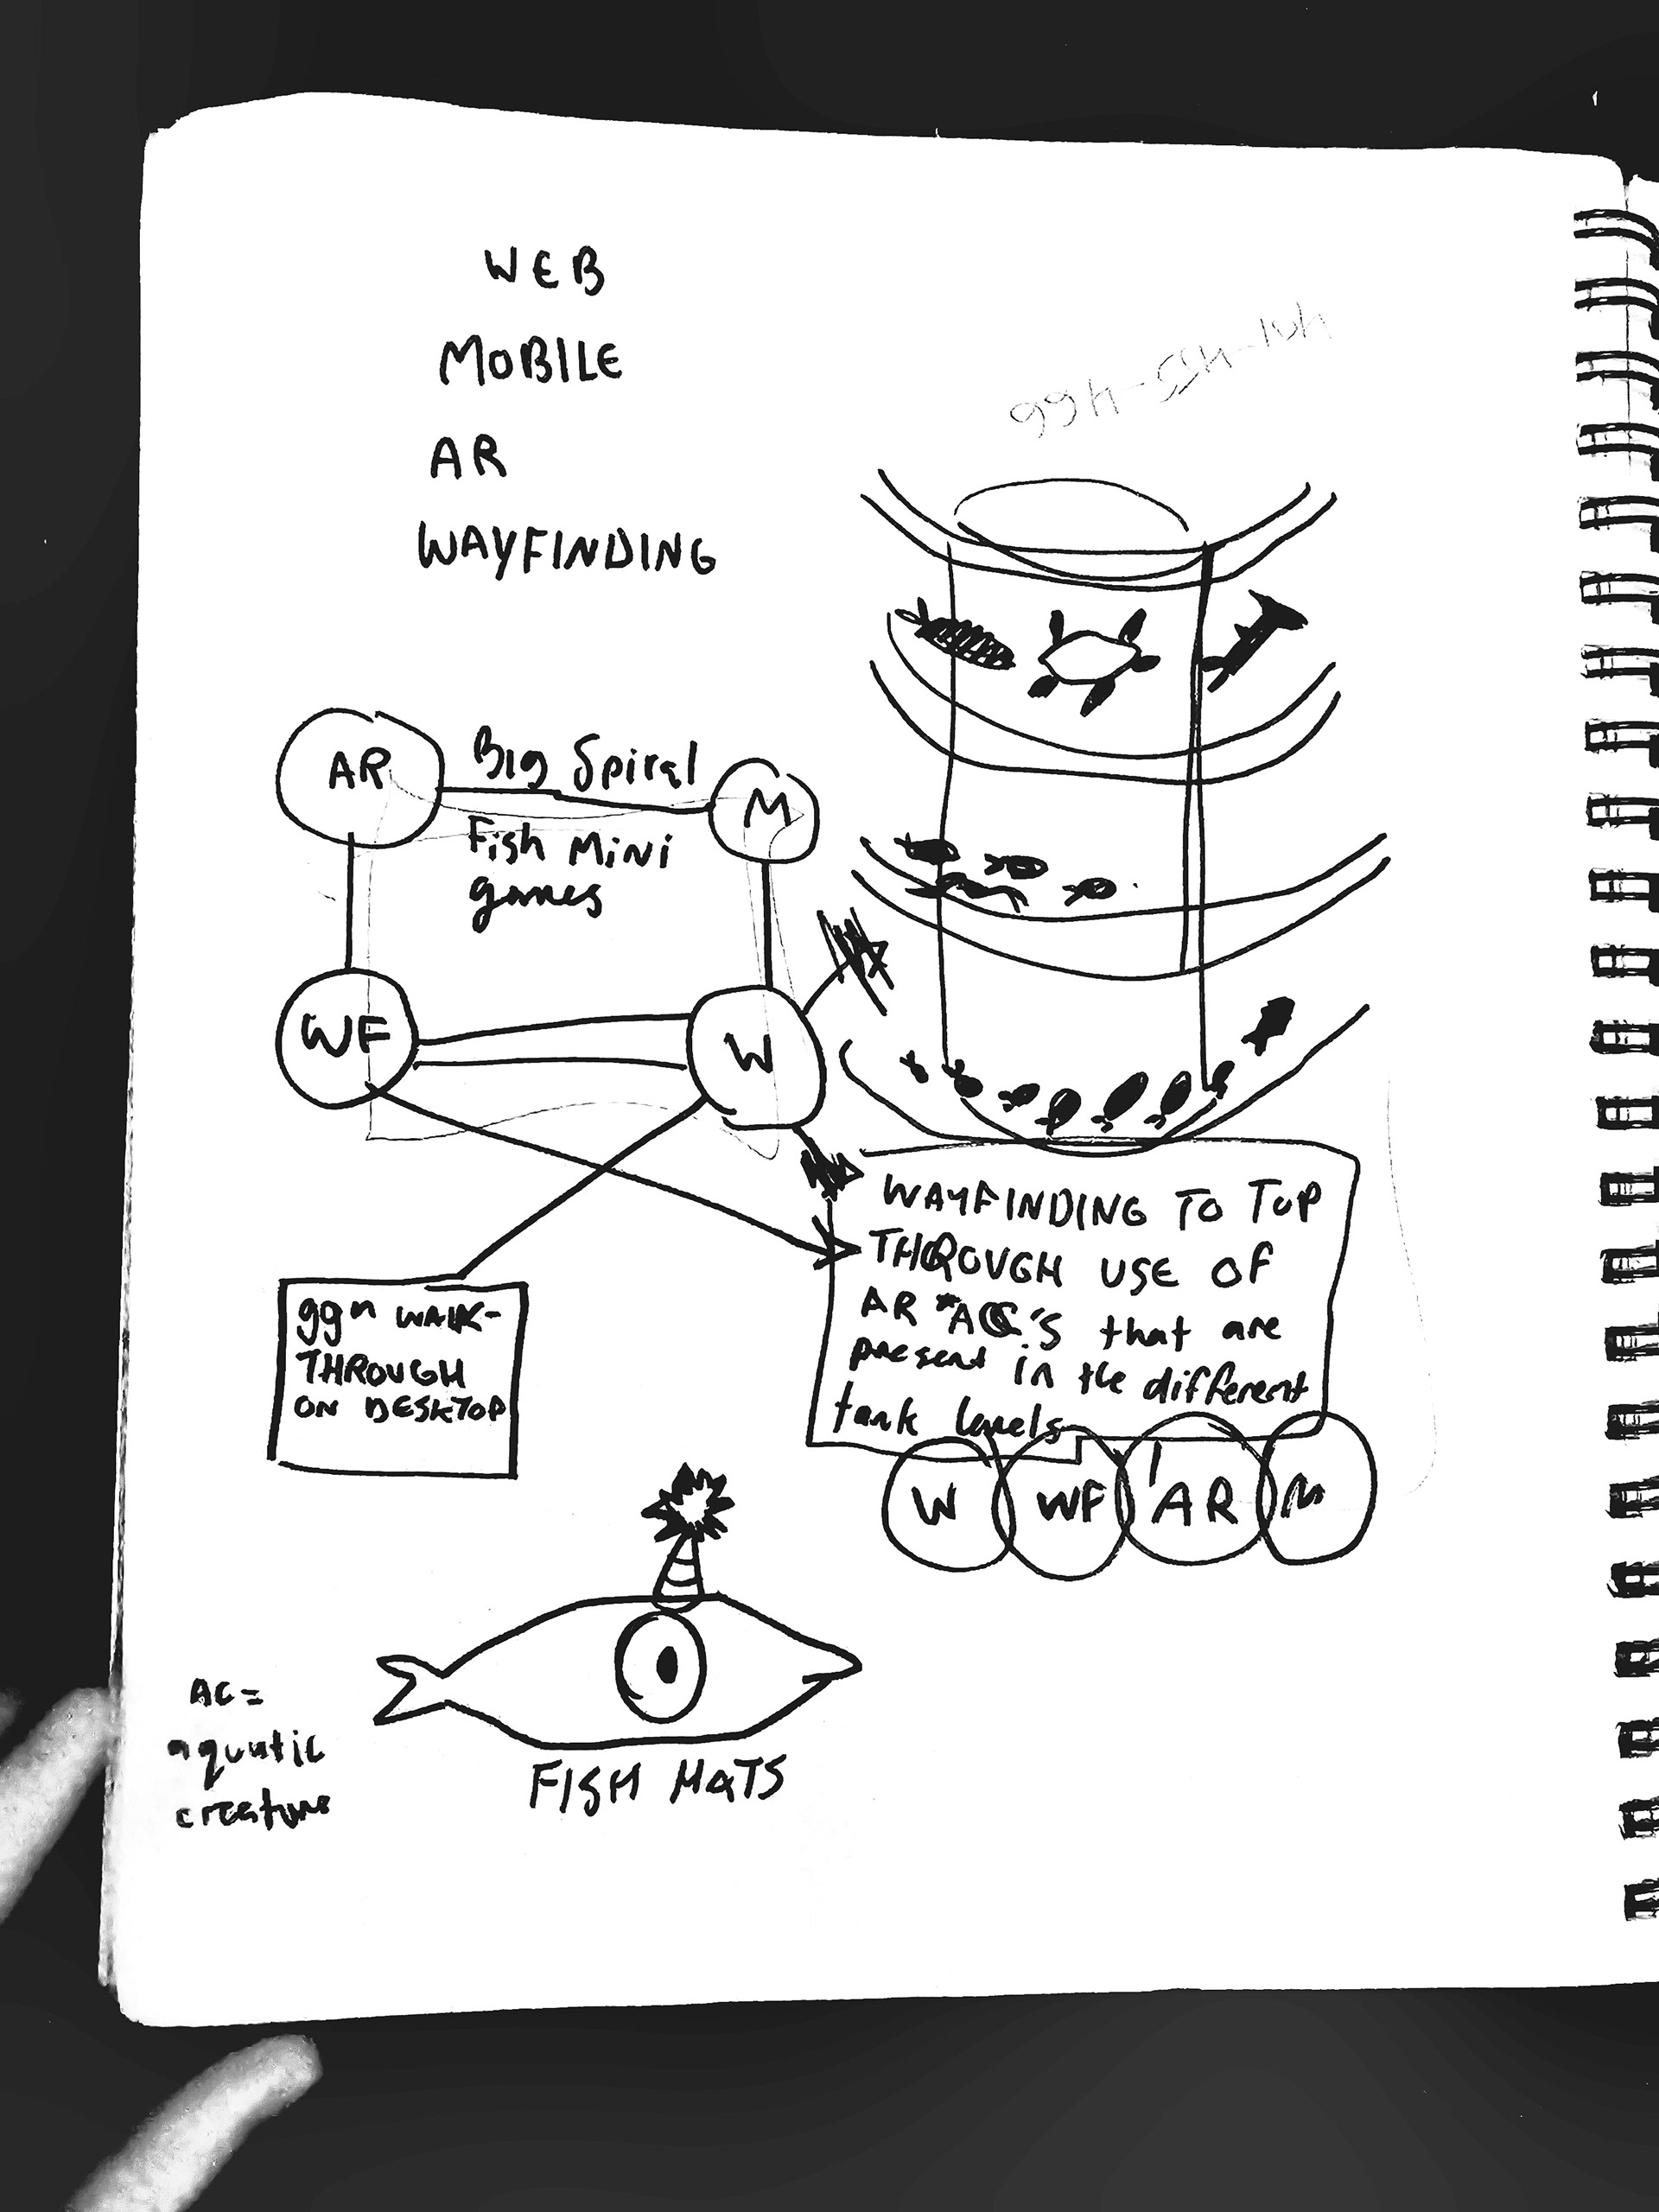 WEB
MOBILE
AR
WAYFINDING
AR
Big Spiral
M
Fish Mini
games
WF
W
WAYFINDING TO TOP
THROUGH USE OF
AR *AC'S that are
present in the different
tank levels
W WF AR M
WALK-
THROUGH
ON DESKTOP
AC=
aquatic
creature
FISH HATS